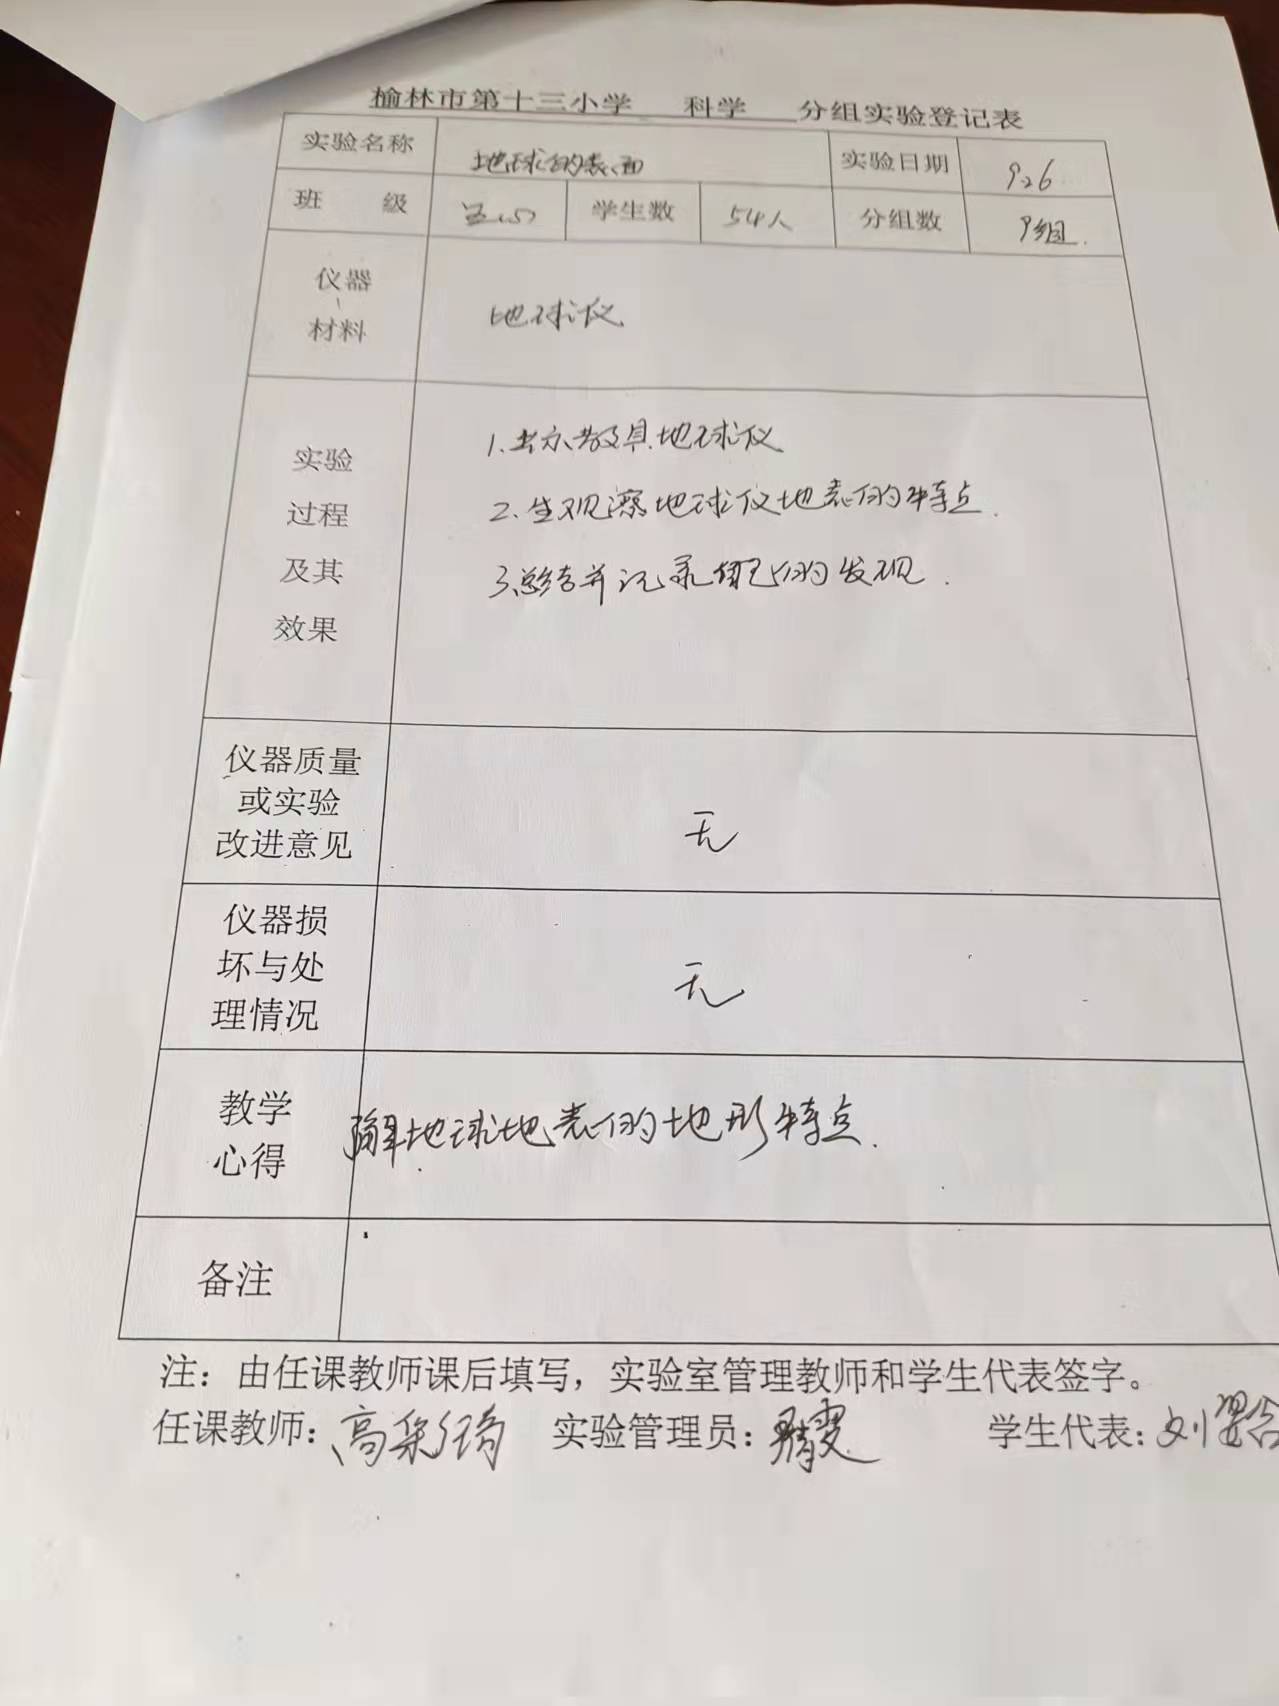 榆林市第十三小学 科学 分组实验登记表
实验名称 地球的表面 实验日期 9.26
班 级 五.(5) 学生数 54人 分组数 9组.
仪器
、
材料
地球仪
实验
过程
及其
效果
1.出示教具地球仪
2、生观察地球仪地表的特点.
3.总结并记录自己的发现.
仪器质量
或实验
改进意见
无
仪器损
坏与处
理情况
无
教学
心得
了解地球地表的地形特点.
备注
注：由任课教师课后填写，实验室管理教师和学生代表签字。
任课教师：高 实验管理员： 学生代表：刘